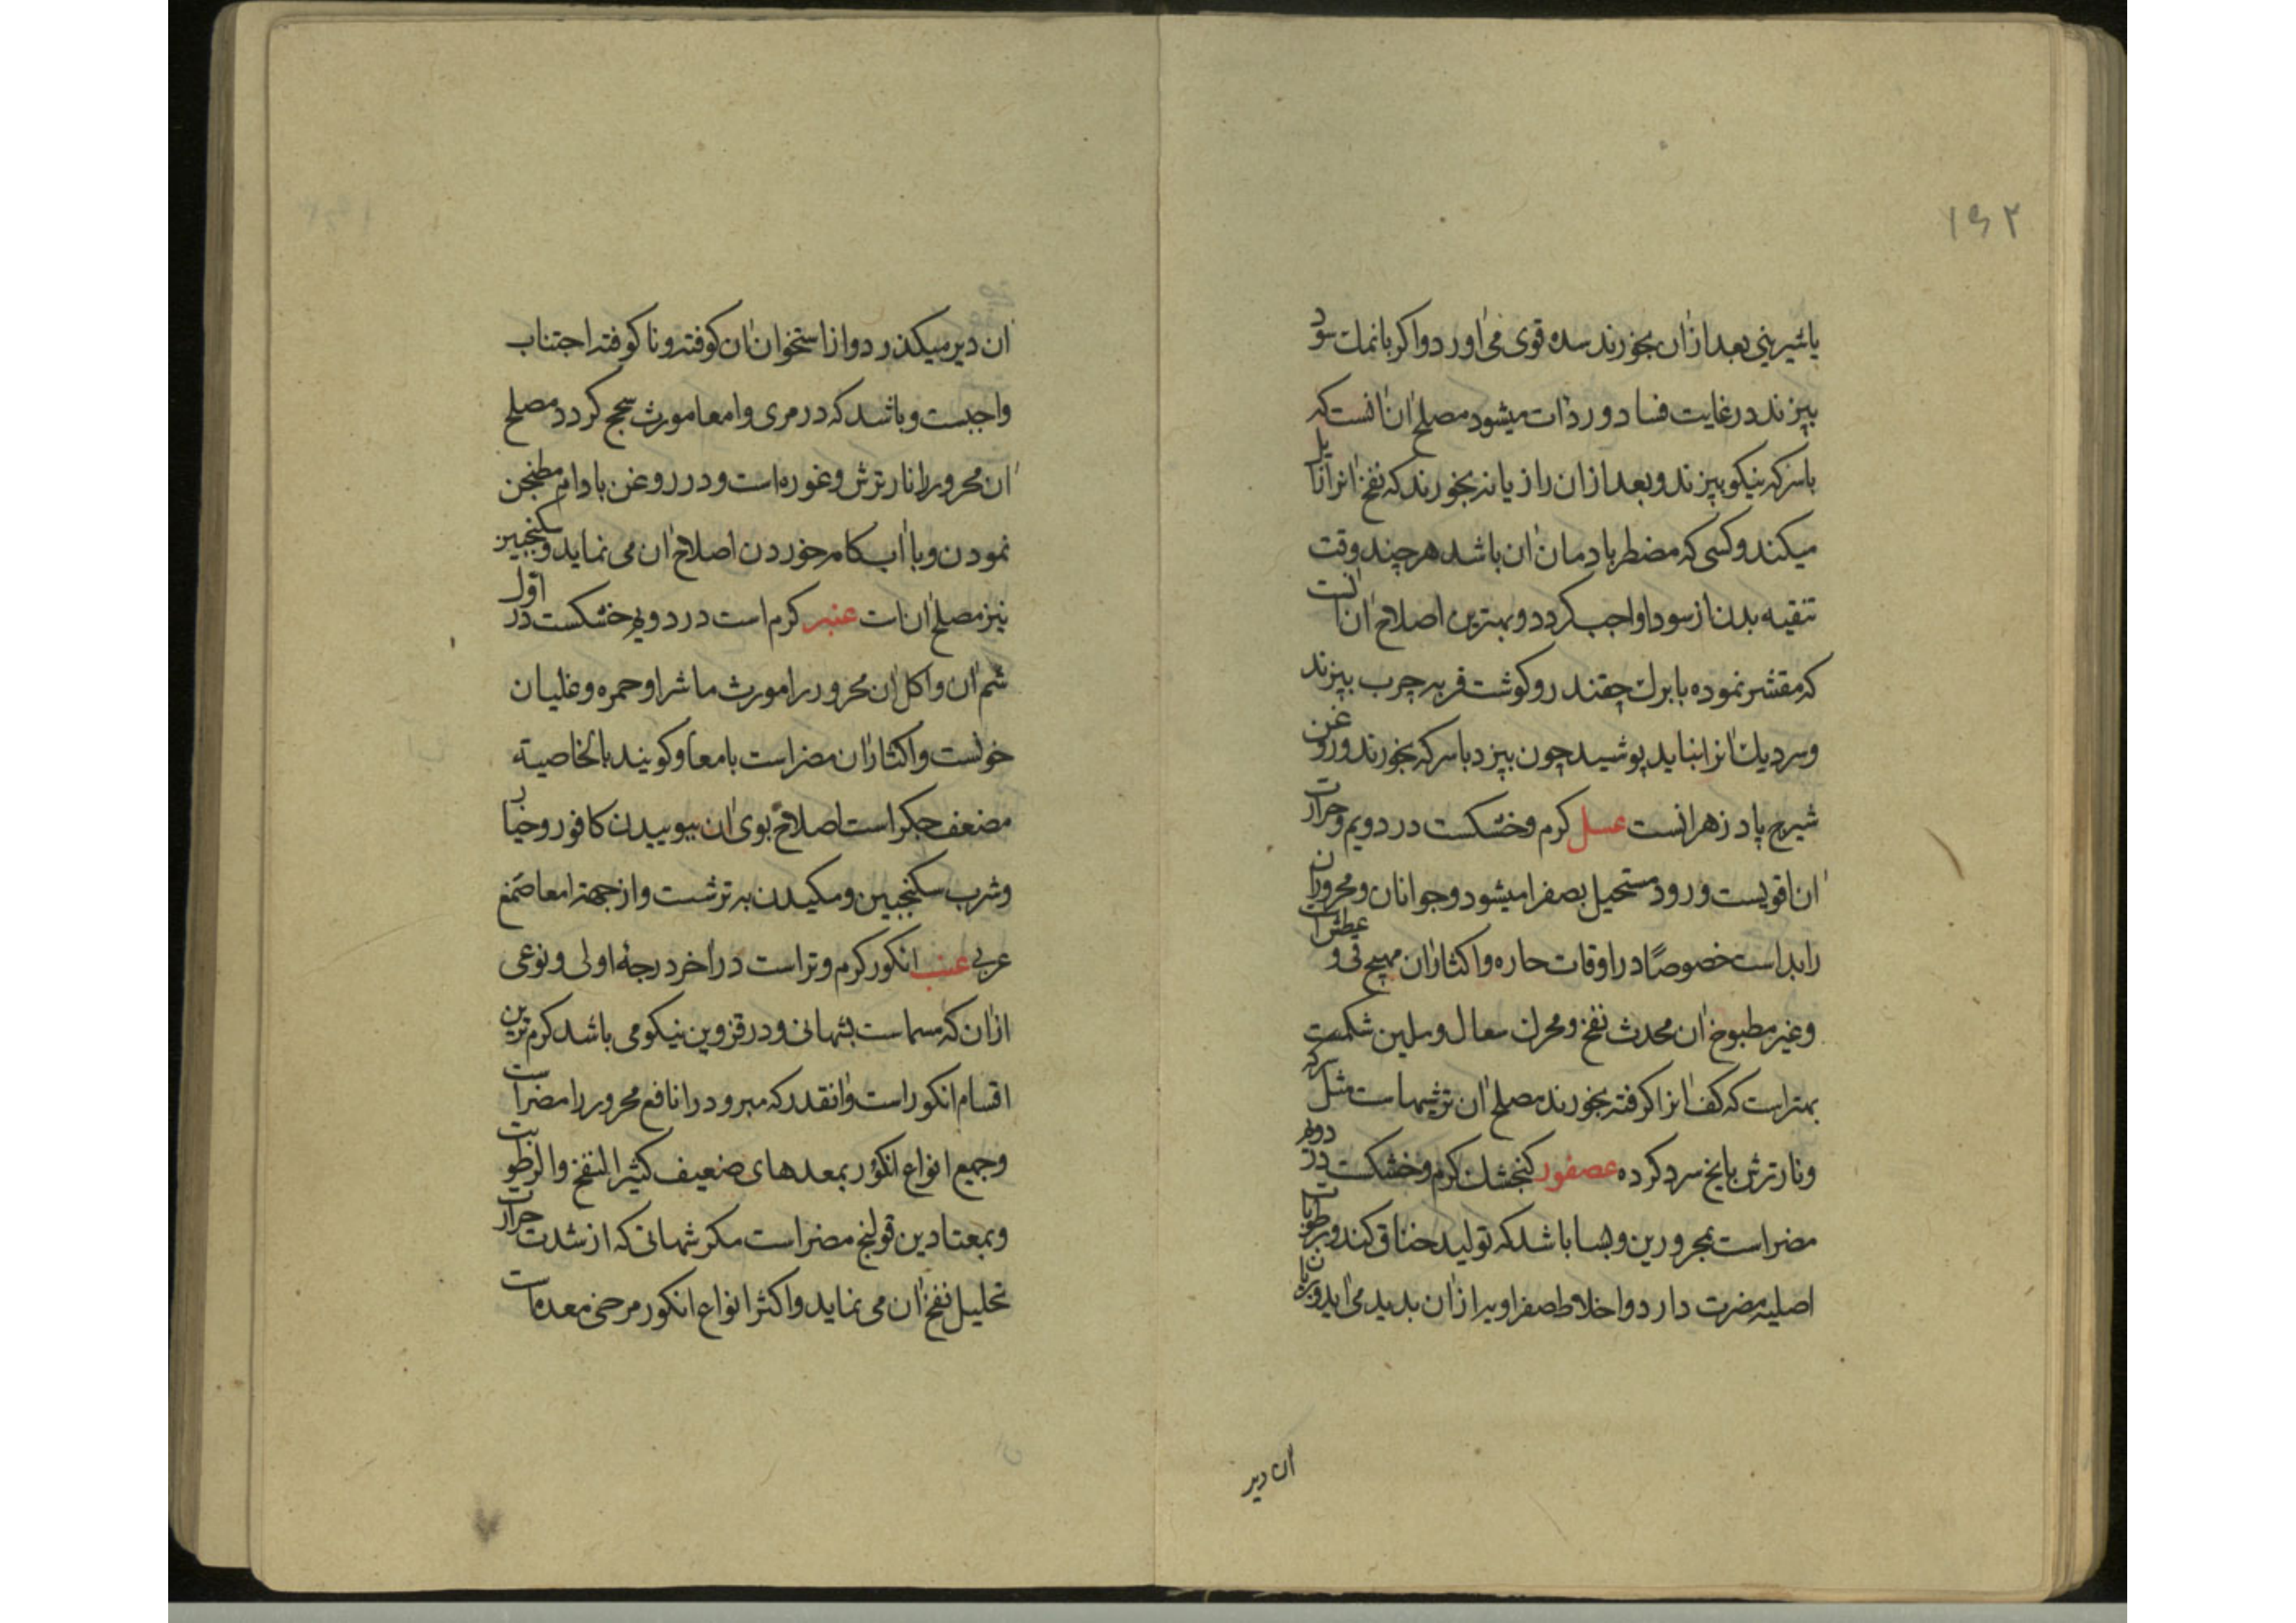 ۱۶۲
یا شیرینی بعد از ان بخورند سده قوی می اورد و اکر با نمک سود
بپزند در غایت فساد و ردات میشود مصلح ان انست که
با سرکه نیکو بپزند و بعد از ان رازیانه بخورند که نفخ انرا زایل
میکند و کسی که مضطر بادمان ان باشد هر چند وقت
تنقیه بدن از سودا واجب کردد و بهترین اصلاح ان انست
که مقشر نموده با برک چقندر و کوشت فربه چرب بپزند
و سر دیک انرا نباید پوشید چون بپزد با سرکه بخورند و روغن
شیرج پاد زهر انست عسل کرم و خشکست در دویم و حرارت
ان اقویست و زود مستحیل بصفرا میشود و جوانان و محروران
را بد است خصوصًا در اوقات حاره و اکثار ان مهیج قی و عطش است
و غیر مطبوخ ان محدث نفخ و محرک سعال و ملین شکمست
بهتر است که کف انرا کرفته بخورند مصلح ان ترشیهاست مثل سرکه
و نار ترش با یخ سرد کرده عصفور کنجشک کرم و خشکست در دویم
مضر است بمحرورین و بسا باشد که تولید خناق کند و برطوبات
اصلیه مضرت دارد و اخلاط صفراویرا از ان بدید می اید و بریان
ان دیر
ان دیر میکذرد و از استخوان ان کوفته و ناکوفته اجتناب
واجبست و باشد که در مری و امعا مورث سحج کردد مصلح
ان محرور را نار ترش و غوره است و در روغن بادام مطنجن
نمودن و با ابکامه خوردن اصلاح ان می نماید و سکنجبین
نیز مصلح ان است عنبر کرم است در دویم خشکست در اول
شم ان و اکل ان محرور را مورث ماشرا و حمره و غلیان
خونست و اکثار ان مضر است بامعا و کویند بالخاصیة
مضعف جکر است اصلاح بوی ان ببوییدن کافور و خیار
و شرب سکنجبین و مکیدن به ترشست و از جهة امعا صمغ
عربی عنب انکور کرم و تر است در اخر درجهٔ اولی و نوعی
از ان که مسماست بشهانی و در قزوین نیکو می باشد کرم ترین
اقسام انکور است و انقدر که مبرود را نافع محرور را مضر است
و جمیع انواع انکور بمعدهای ضعیف کثیر النفخ و الرطوبت
و بمعتادین قولنج مضر است مکر شهانی که از شدت حرارت
تحلیل نفخ ان می نماید و اکثر انواع انکور مرخی معده است